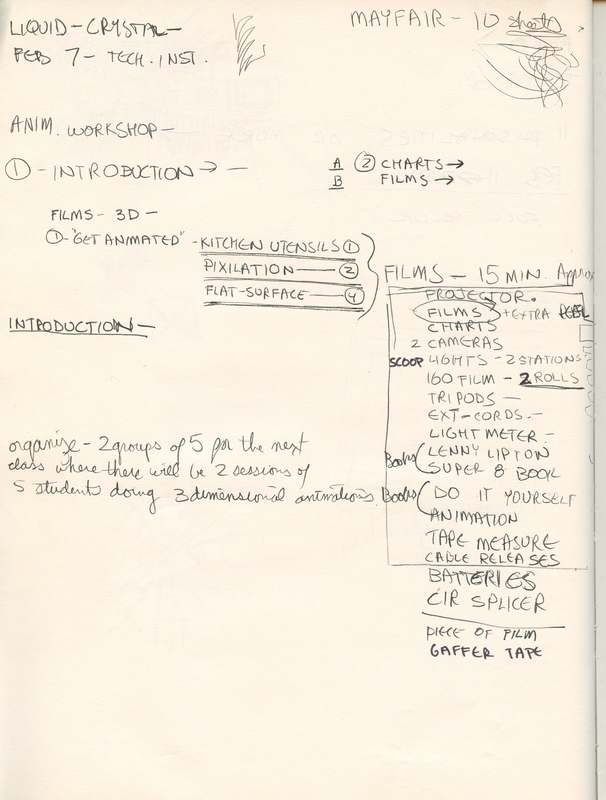 LIQUID-CRYSTAL-
FEB 7- TECH. INST.
MAYFAIR - 10 sheets
ANIM. WORKSHOP-
① - INTRODUCTION → -
A ② CHARTS→
B FILMS →
FILMS- 3D -
①-"GET ANIMATED" - KITCHEN UTENSILS ①
PIXILATION — ②
FLAT-SURFACE — ④
INTRODUCTION-
FILMS - 15 MIN. Approx
PROJECTOR.
FILMS + EXTRA REEL
CHARTS
2 CAMERAS
SCOOP LIGHTS - 2 STATIONS
160 FILM - 2 ROLLS
TRIPODS -
EXT-CORDS.-
LIGHT METER -
Books ( LENNY LIPTON
SUPER 8 BOOK
Books ( DO IT YOURSELF
ANIMATION
TAPE MEASURE
CABLE RELEASES
BATTERIES
CIR SPLICER
PIECE OF FILM
GAFFER TAPE
organize - 2 groups of 5 for the next
class where there will be 2 sessions of
5 students doing 3 dimensional animations.